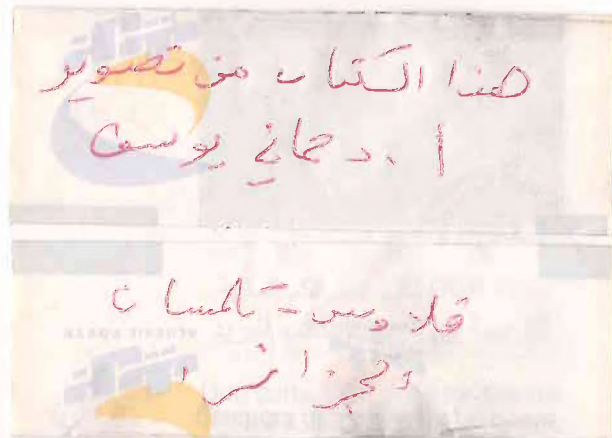 هذا الكتاب من تصوير
أ. دحماني يوسف
فلاوسن - تلمسان
الجزائر